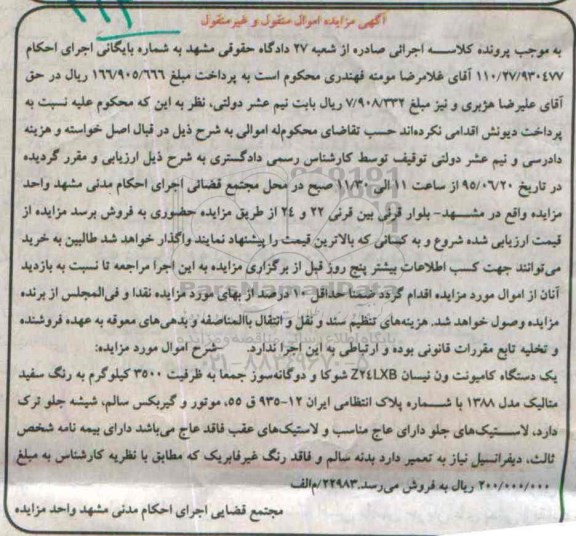 آگهی مزایده اموال منقول و غیرمنقول
به موجب پرونده کلاسه اجرائی صادره از شعبه ۲۷ دادگاه حقوقی مشهد به شماره بایگانی اجرای احکام
۱۱۰/۲۷/۹۳۰۴۷۷ آقای غلامرضا مومنه قهندری محکوم است به پرداخت مبلغ ۱۶۶/۹۰۵/۶۶۶ ریال در حق
آقای علیرضا هژبری و نیز مبلغ ۷/۹۰۸/۳۳۲ ریال بابت نیم عشر دولتی، نظر به این که محکوم علیه نسبت به
پرداخت دیونش اقدامی نکرده‌اند حسب تقاضای محکوم‌له اموالی به شرح ذیل در قبال اصل خواسته و هزینه
دادرسی و نیم عشر دولتی توقیف توسط کارشناس رسمی دادگستری به شرح ذیل ارزیابی و مقرر گردیده
در تاریخ ۹۵/۰۶/۲۰ از ساعت ۱۱ الی ۱۱/۳۰ صبح در محل مجتمع قضائی اجرای احکام مدنی مشهد واحد
مزایده واقع در مشهد- بلوار قرنی بین قرنی ۲۲ و ۲۴ از طریق مزایده حضوری به فروش برسد مزایده از
قیمت ارزیابی شده شروع و به کسانی که بالاترین قیمت را پیشنهاد نمایند واگذار خواهد شد طالبین به خرید
می‌توانند جهت کسب اطلاعات بیشتر پنج روز قبل از برگزاری مزایده به این اجرا مراجعه تا نسبت به بازدید
آنان از اموال مورد مزایده اقدام گردد ضمنا حداقل ۱۰ درصد از بهای مورد مزایده نقدا و فی‌المجلس از برنده
مزایده وصول خواهد شد. هزینه‌های تنظیم سند و نقل و انتقال باالمناصفه و بدهی‌های معوقه به عهده فروشنده
و تخلیه تابع مقررات قانونی بوده و ارتباطی به این اجرا ندارد. شرح اموال مورد مزایده:
یک دستگاه کامیونت ون نیسان Z۲۴LXB شوکا و دوگانه‌سوز جمعا به ظرفیت ۳۵۰۰ کیلوگرم به رنگ سفید
متالیک مدل ۱۳۸۸ با شماره پلاک انتظامی ایران ۱۲-۹۳۵ ق ۵۵، موتور و گیربکس سالم، شیشه جلو ترک
دارد، لاستیک‌های جلو دارای عاج مناسب و لاستیک‌های عقب فاقد عاج می‌باشد دارای بیمه نامه شخص
ثالث، دیفرانسیل نیاز به تعمیر دارد بدنه سالم و فاقد رنگ غیرفابریک که مطابق با نظریه کارشناس به مبلغ
۲۰۰/۰۰۰/۰۰۰ ریال به فروش می‌رسد.۲۲۹۸۳/م‌الف
مجتمع قضایی اجرای احکام مدنی مشهد واحد مزایده